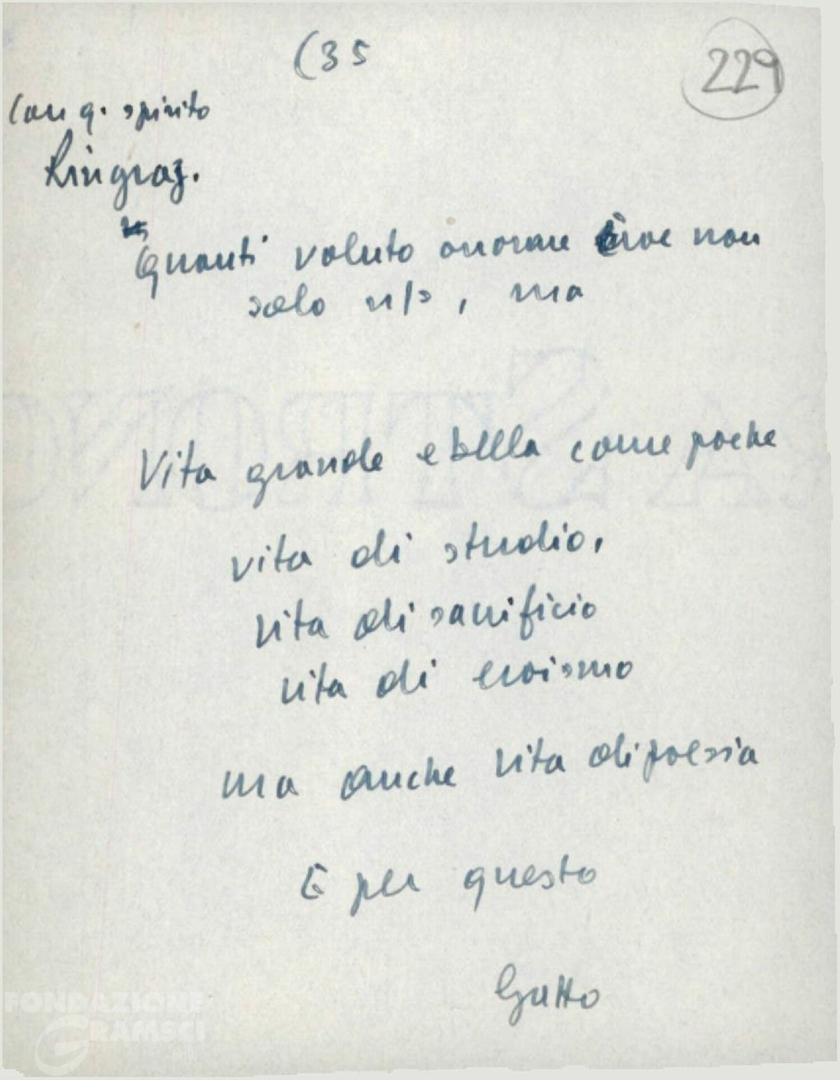 (35
229
Con q. spirito
Ringraz.
Quanti voluto onorare Eroe non
solo n/s, ma
Vita grande e bella come poche
vita di studio,
vita di sacrificio
vita di eroismo
ma anche vita di poesia
E per questo
Gatto
FONDAZIONE
GRAMSCI